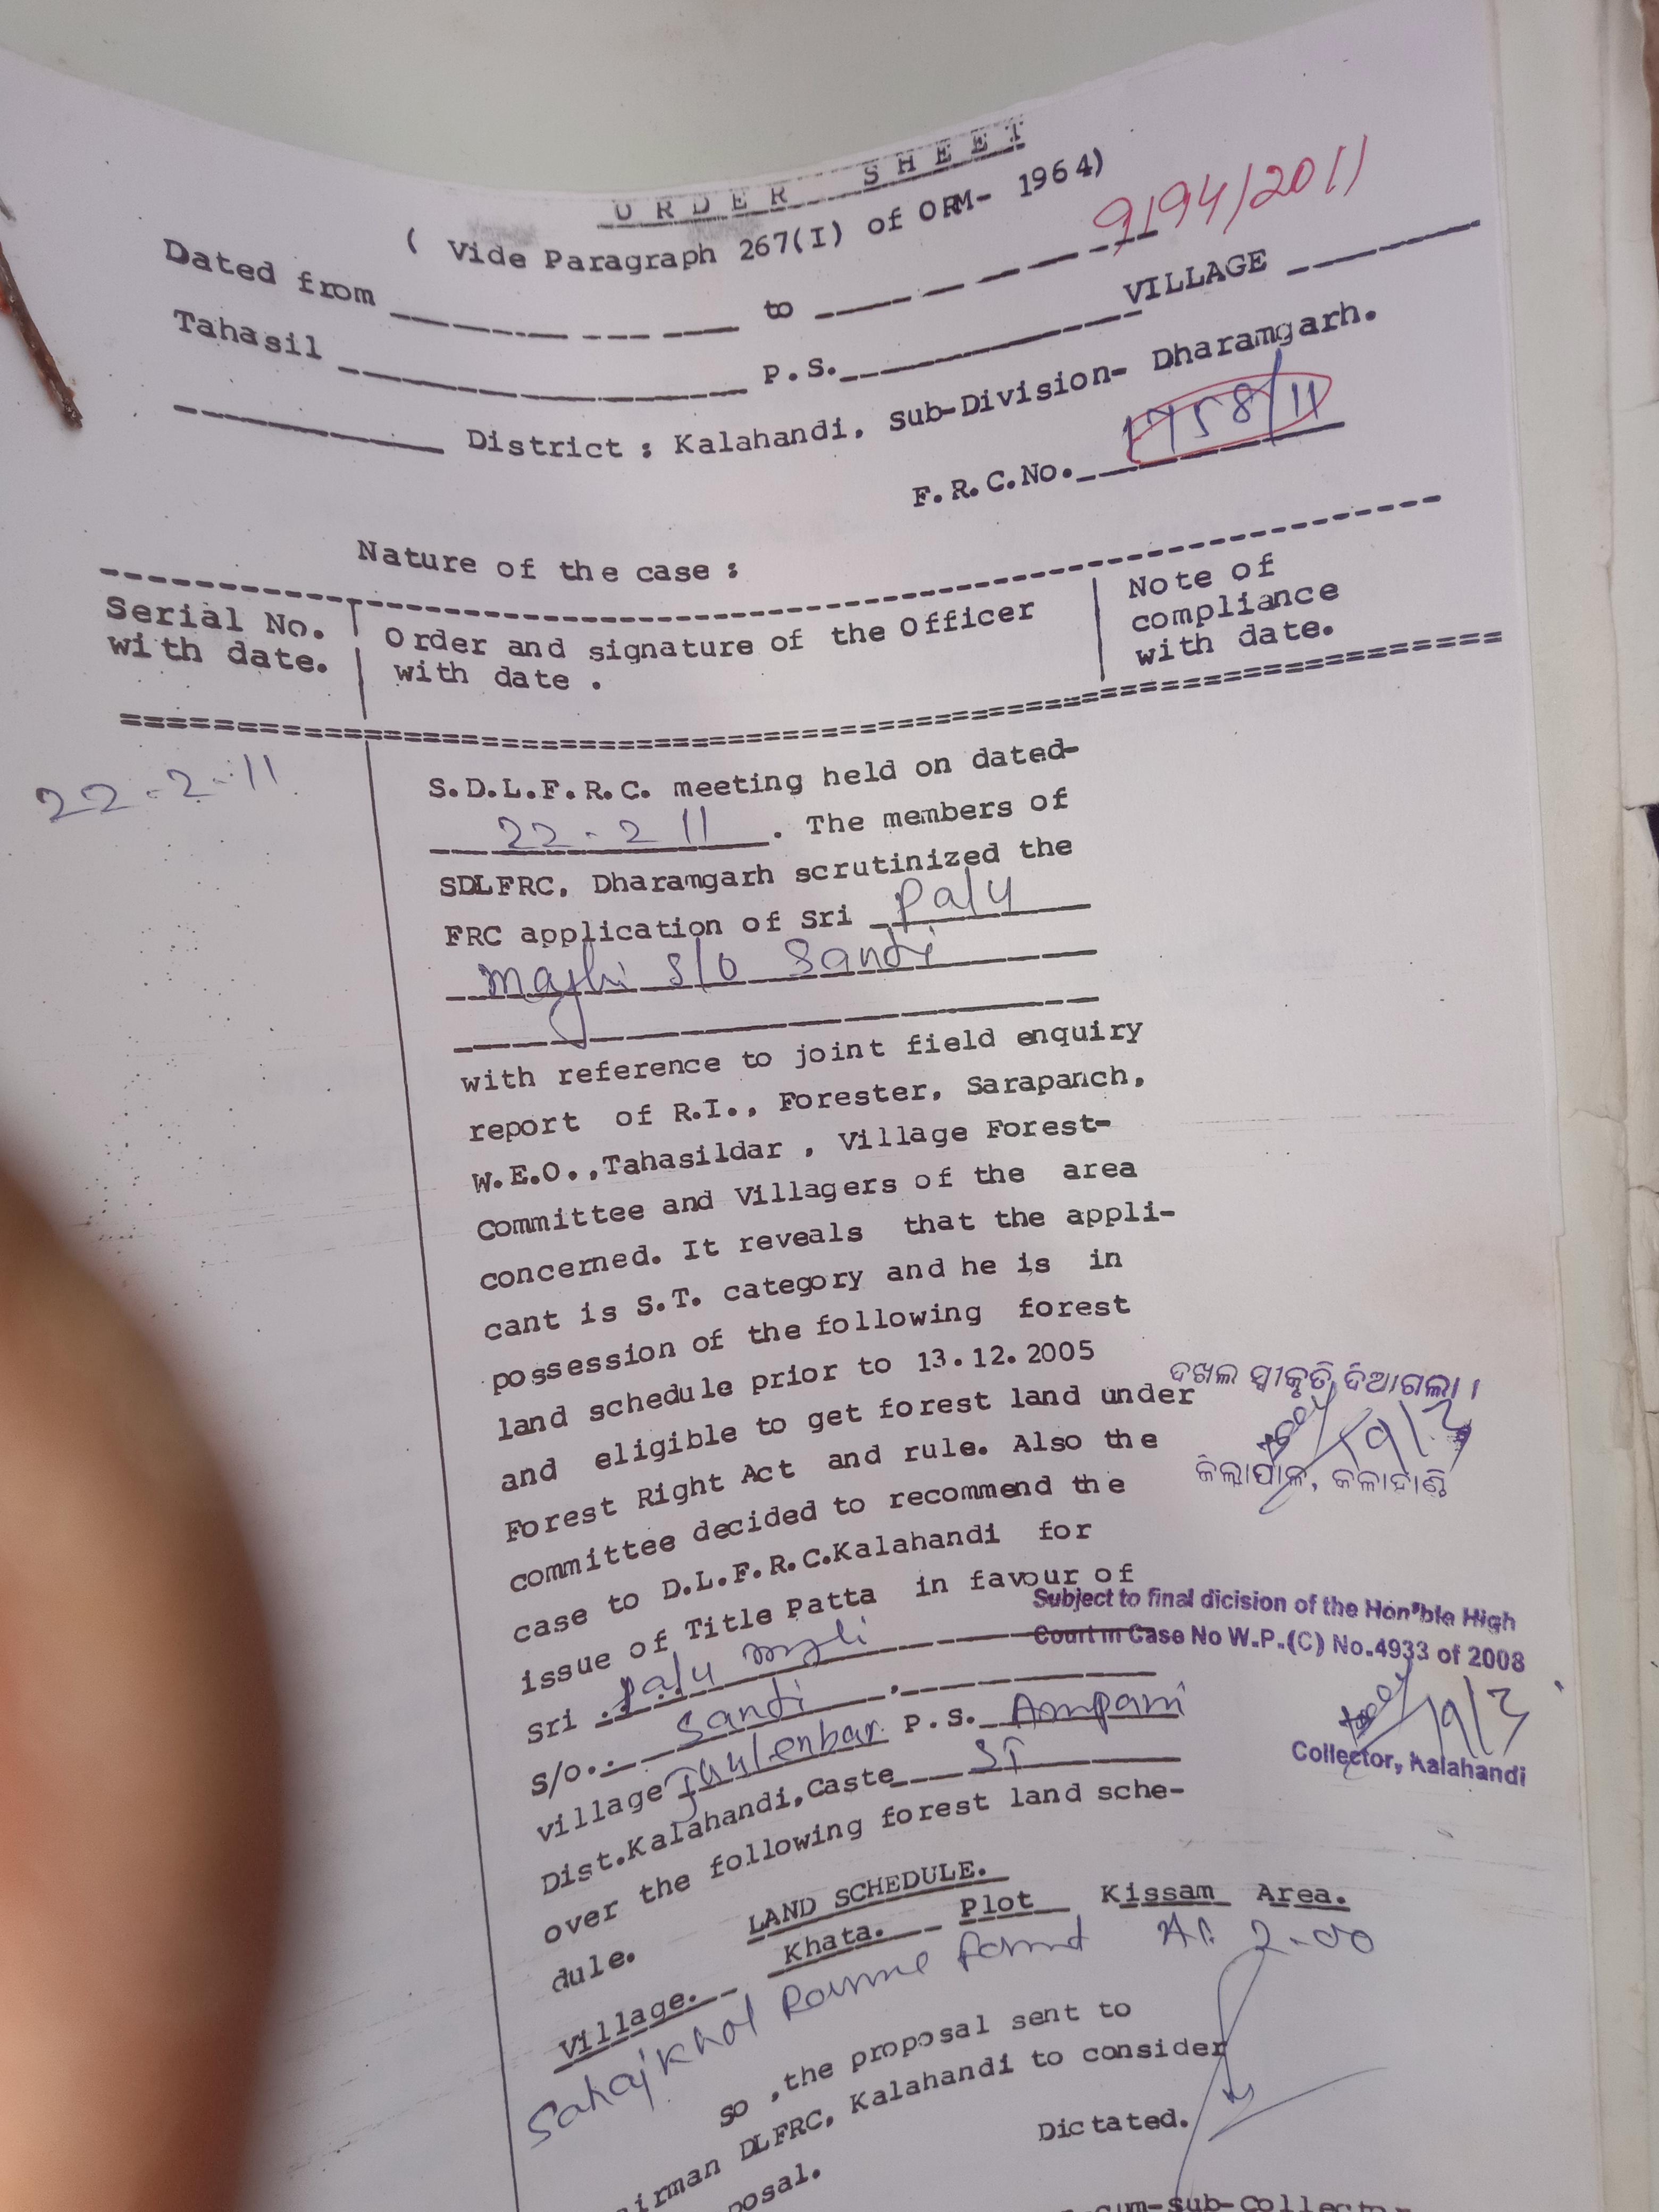 ORDER SHEET
( Vide Paragraph 267(I) of ORM- 1964)
9194/2011
Dated from to
Tahasil P.S. VILLAGE
District : Kalahandi, Sub-Division- Dharamgarh.
F.R.C.No. 1758/11
Nature of the case :
Serial No. with date.
Order and signature of the Officer with date .
Note of compliance with date.
22-2-11
S.D.L.F.R.C. meeting held on dated-
22-2 11 . The members of
SDLFRC, Dharamgarh scrutinized the
FRC application of Sri Palu
Majhi S/o Sandi
with reference to joint field enquiry
report of R.I., Forester, Sarapanch,
W.E.O.,Tahasildar , Village Forest-
Committee and Villagers of the area
concerned. It reveals that the appli-
cant is S.T. category and he is in
possession of the following forest
land schedule prior to 13.12.2005
and eligible to get forest land under
Forest Right Act and rule. Also the
committee decided to recommend the
case to D.L.F.R.C.Kalahandi for
issue of Title Patta in favour of
Sri Palu Majhi
S/o. Sandi
village P.S. Ampani
Dist.Kalahandi,Caste ST
over the following forest land sche-
dule.
ଦଖଲ ସ୍ୱୀକୃତି ଦିଆଗଲା ।
19/3
ଜିଲ୍ଲାପାଳ, କଳାହାଣ୍ଡି
Subject to final dicision of the Hon'ble High
Court in Case No W.P.(C) No.4933 of 2008
19/3
Collector, Kalahandi
LAND SCHEDULE.
Village. Khata. Plot Kissam Area.
Sahajkhol Ac 2-00
So ,the proposal sent to
irman DLFRC, Kalahandi to consider
posal.
Dictated.
cum-Sub-Collector